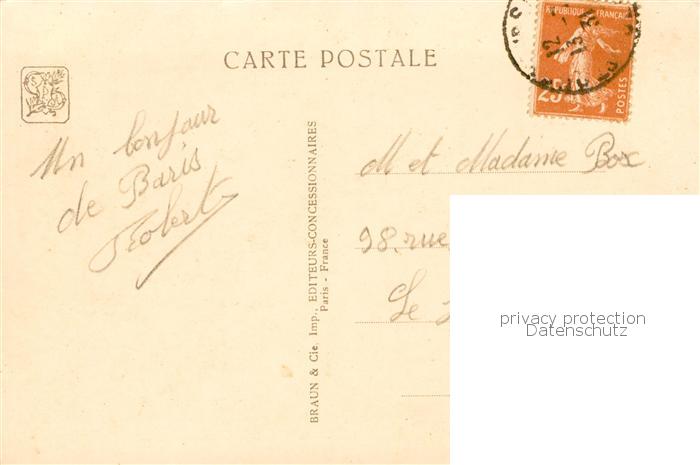 CARTE POSTALE
REPUBLIQUE FRANÇAISE
25
POSTES
12 -
13
Un bonjour
de Paris
Robert
BRAUN & Cie, Imp., EDITEURS-CONCESSIONNAIRES
Paris - France
M et Madame Box
98. rue
Le
privacy protection
Datenschutz